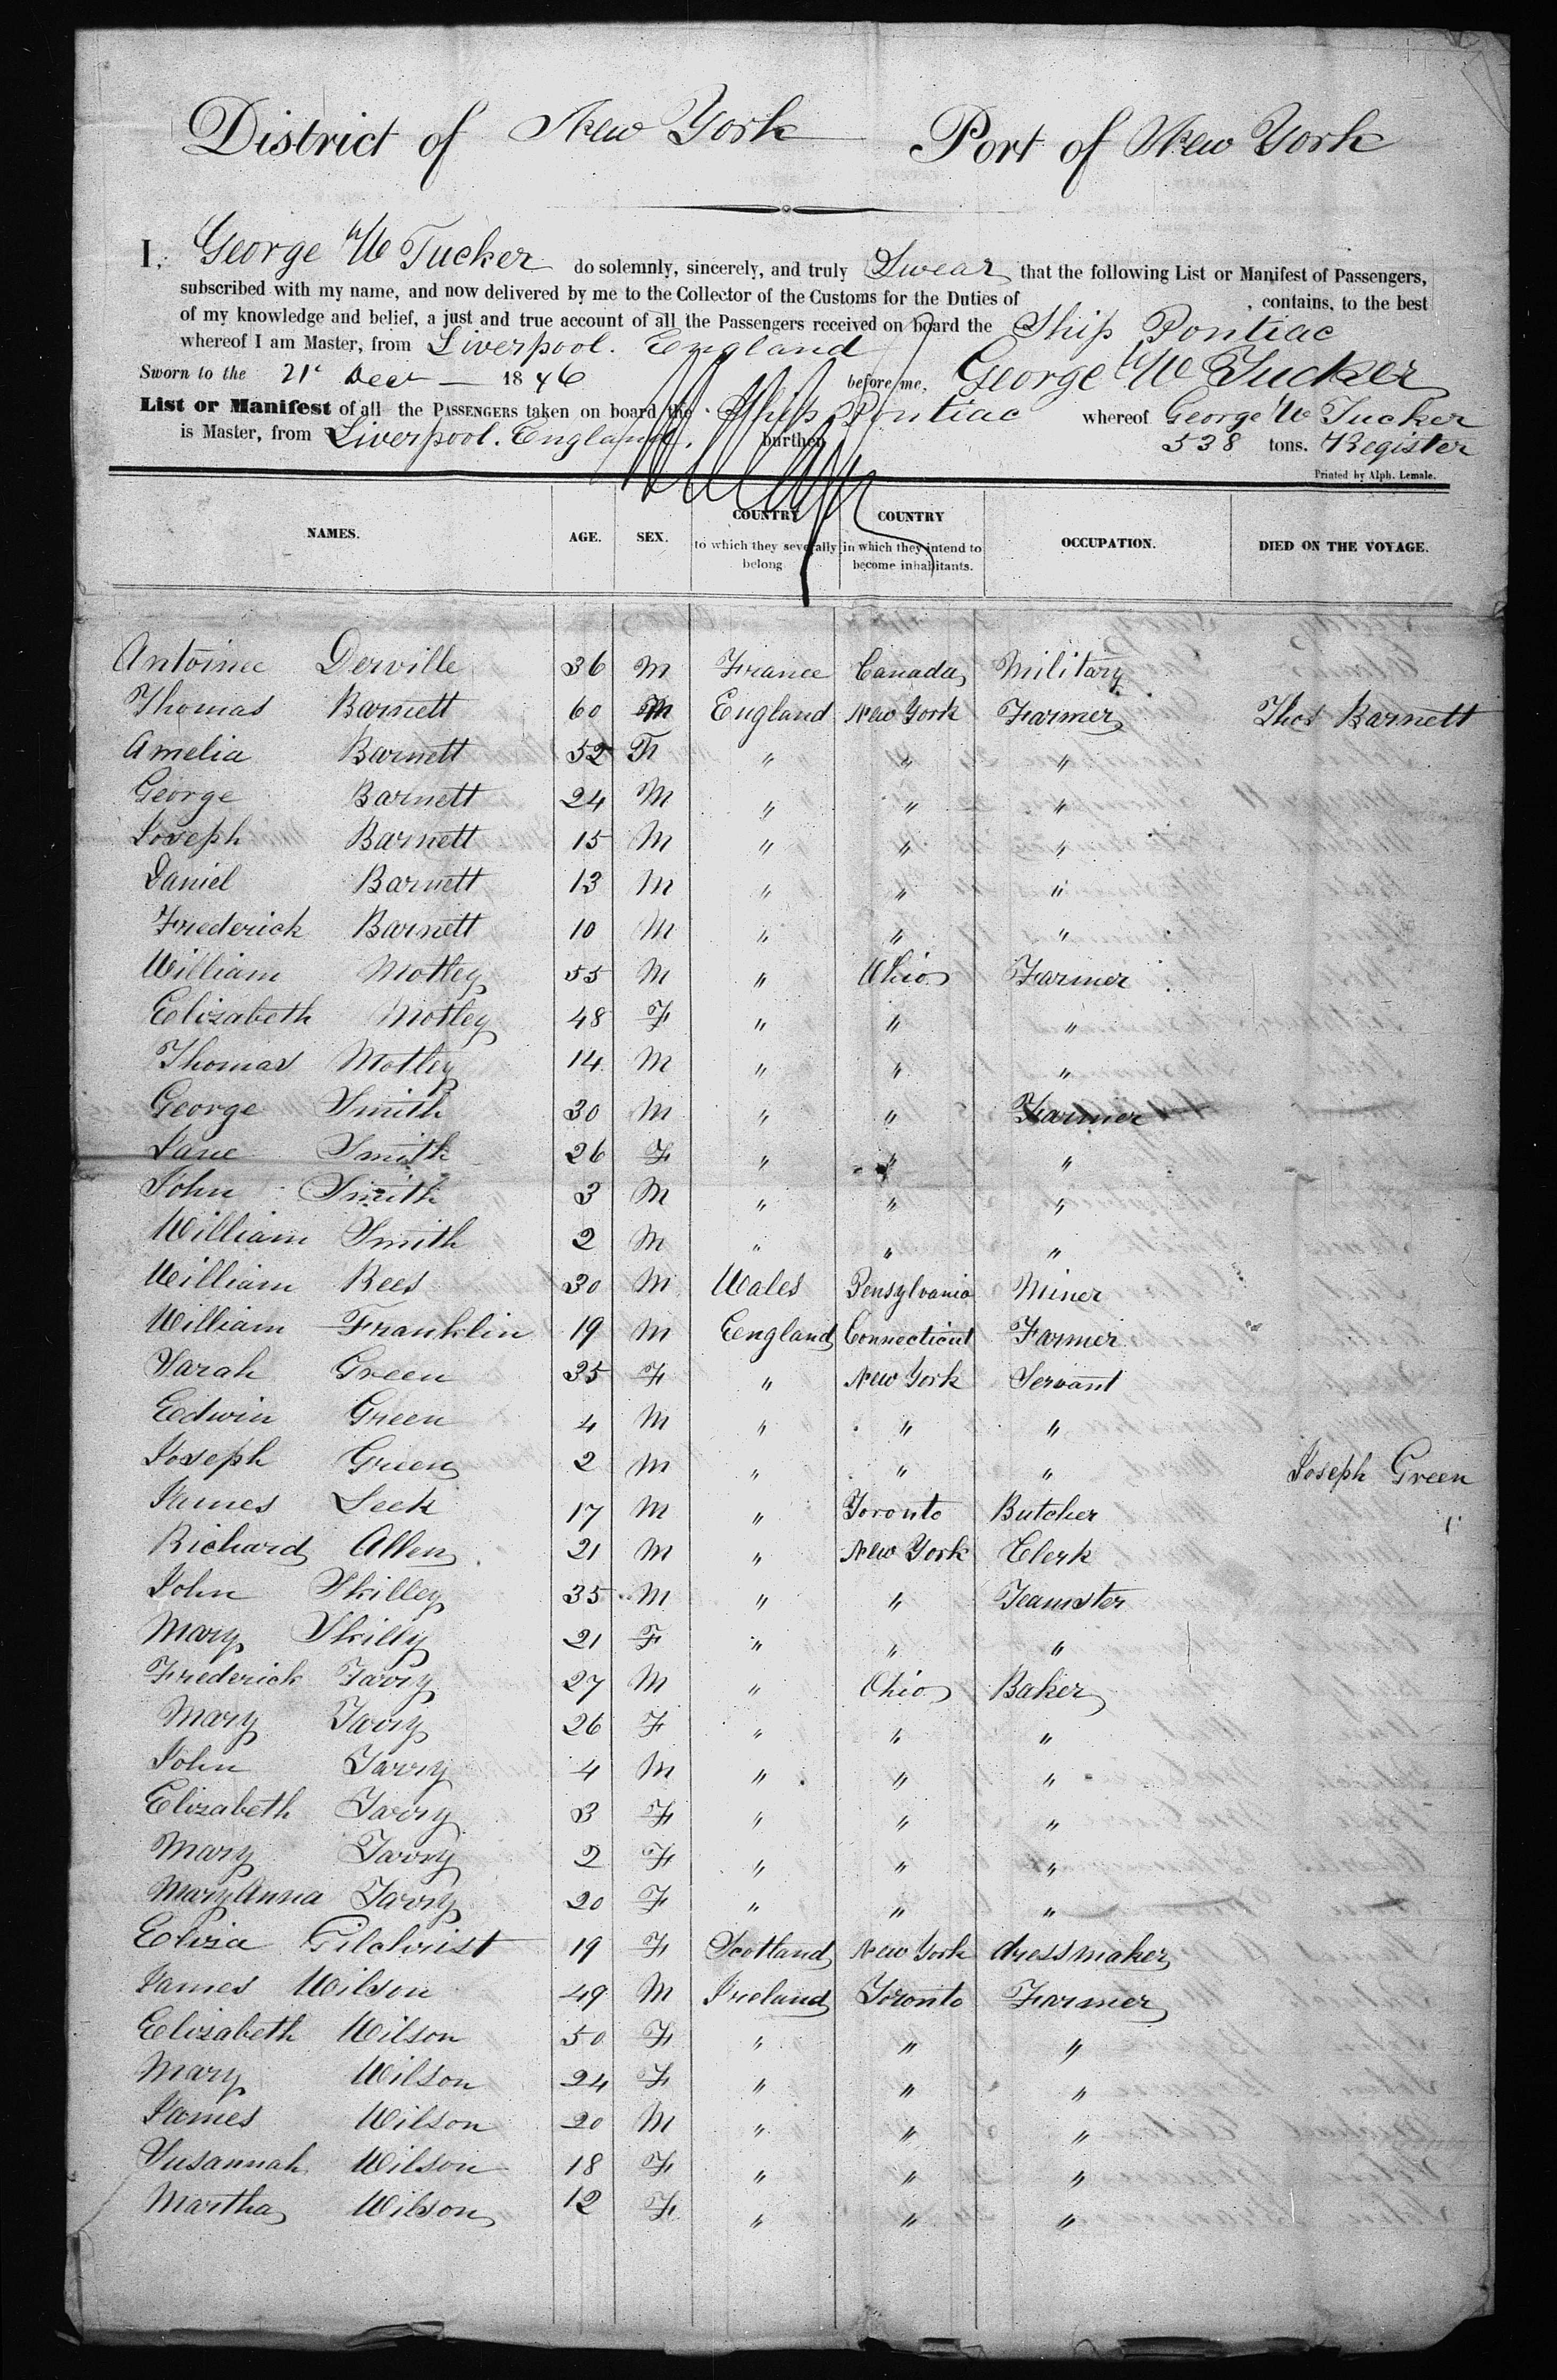 District of New York Port of New York
I, George W Tucker do solemnly, sincerely, and truly Swear that the following List or Manifest of Passengers,
subscribed with my name, and now delivered by me to the Collector of the Customs for the Duties of , contains, to the best
of my knowledge and belief, a just and true account of all the Passengers received on board the Ship Pontiac
whereof I am Master, from Liverpool. England
Sworn to the 21 Decr 1846 before me, George W Tucker
List or Manifest of all the PASSENGERS taken on board the Ship Pontiac whereof George W Tucker
is Master, from Liverpool. England. burthen 538 tons. Register
Printed by Alph. Lemale.
NAMES. AGE. SEX. COUNTRY to which they severally belong COUNTRY in which they intend to become inhabitants. OCCUPATION. DIED ON THE VOYAGE.
Antoinee Derville 36 M France Canada Military
Thomas Barnett 60 M England New York Farmer Thos Barnett
Amelia Barnett 52 F " " "
George Barnett 24 M " " "
Joseph Barnett 15 M " " "
Daniel Barnett 13 M " " "
Frederick Barnett 10 M " " "
William Motley 55 M " Ohio Farmer
Elizabeth Motley 48 F " " "
Thomas Motley 14 M " " "
George Smith 30 M " " Farmer
Jane Smith 26 F " " "
John Smith 3 M " " "
William Smith 2 M " " "
William Rees 30 M Wales Pensylvania Miner
William Franklin 19 M England Connecticut Farmer
Sarah Green 35 F " New York Servant
Edwin Green 4 M " " "
Joseph Green 2 M " " " Joseph Green
James Leek 17 M " Toronto Butcher
Richard Allen 21 M " New York Clerk
John Skilley 35 M " " Teamster
Mary Skilly 21 F " " "
Frederick Tarry 27 M " Ohio Baker
Mary Tarry 26 F " " "
John Tarry 4 M " " "
Elizabeth Tarry 3 F " " "
Mary Tarry 2 F " " "
Mary Anna Tarry 20 F " " "
Eliza Gilchrist 19 F Scotland New York dressmaker
James Wilson 49 M Ireland Toronto Farmer
Elizabeth Wilson 50 F " " "
Mary Wilson 24 F " " "
James Wilson 20 M " " "
Susannah Wilson 18 F " " "
Martha Wilson 12 F " " "